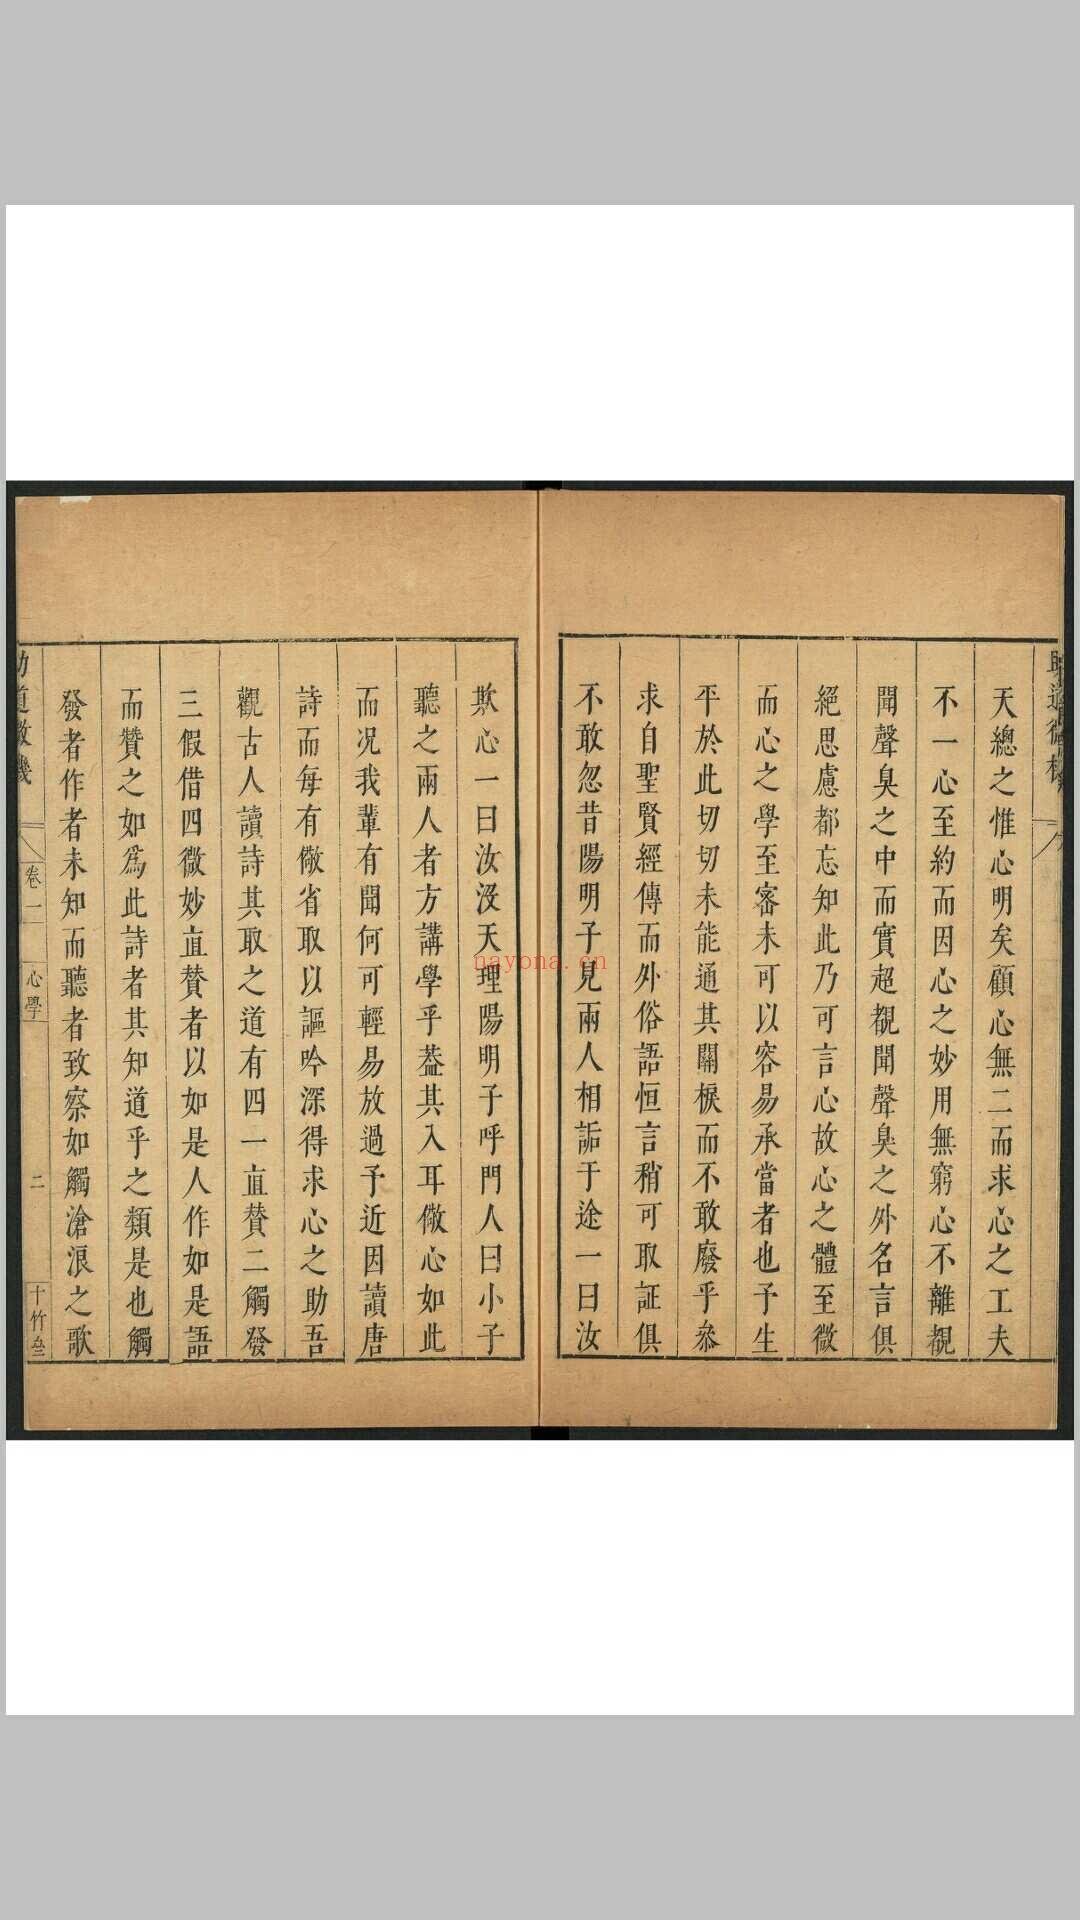 天總之惟心明矣顧心無二而求心之工夫
不一心至約而因心之妙用無窮心不離覩
聞聲臭之中而實超覩聞聲臭之外名言俱
絕思慮都忘知此乃可言心故心之體至微
而心之學至審未可以容易承當者也予生
平於此切切未能通其關棙而不敢廢乎叅
求自聖賢經傳而外俗語恒言稍可取証俱
不敢忽昔陽明子見兩人相詬于途一曰汝
欺心一曰汝沒天理陽明子呼門人曰小子
聽之兩人者方講學乎葢其入耳儆心如此
而况我輩有聞何可輕易放過予近因讀唐
詩而每有儆省取以謳吟深得求心之助吾
觀古人讀詩其取之道有四一直賛二觸發
三假借四微妙直賛者以如是人作如是語
而贊之如爲此詩者其知道乎之類是也觸
發者作者未知而聽者致察如觸滄浪之歌
助道微機
卷一
心學
二
十竹叄
nayona.cn